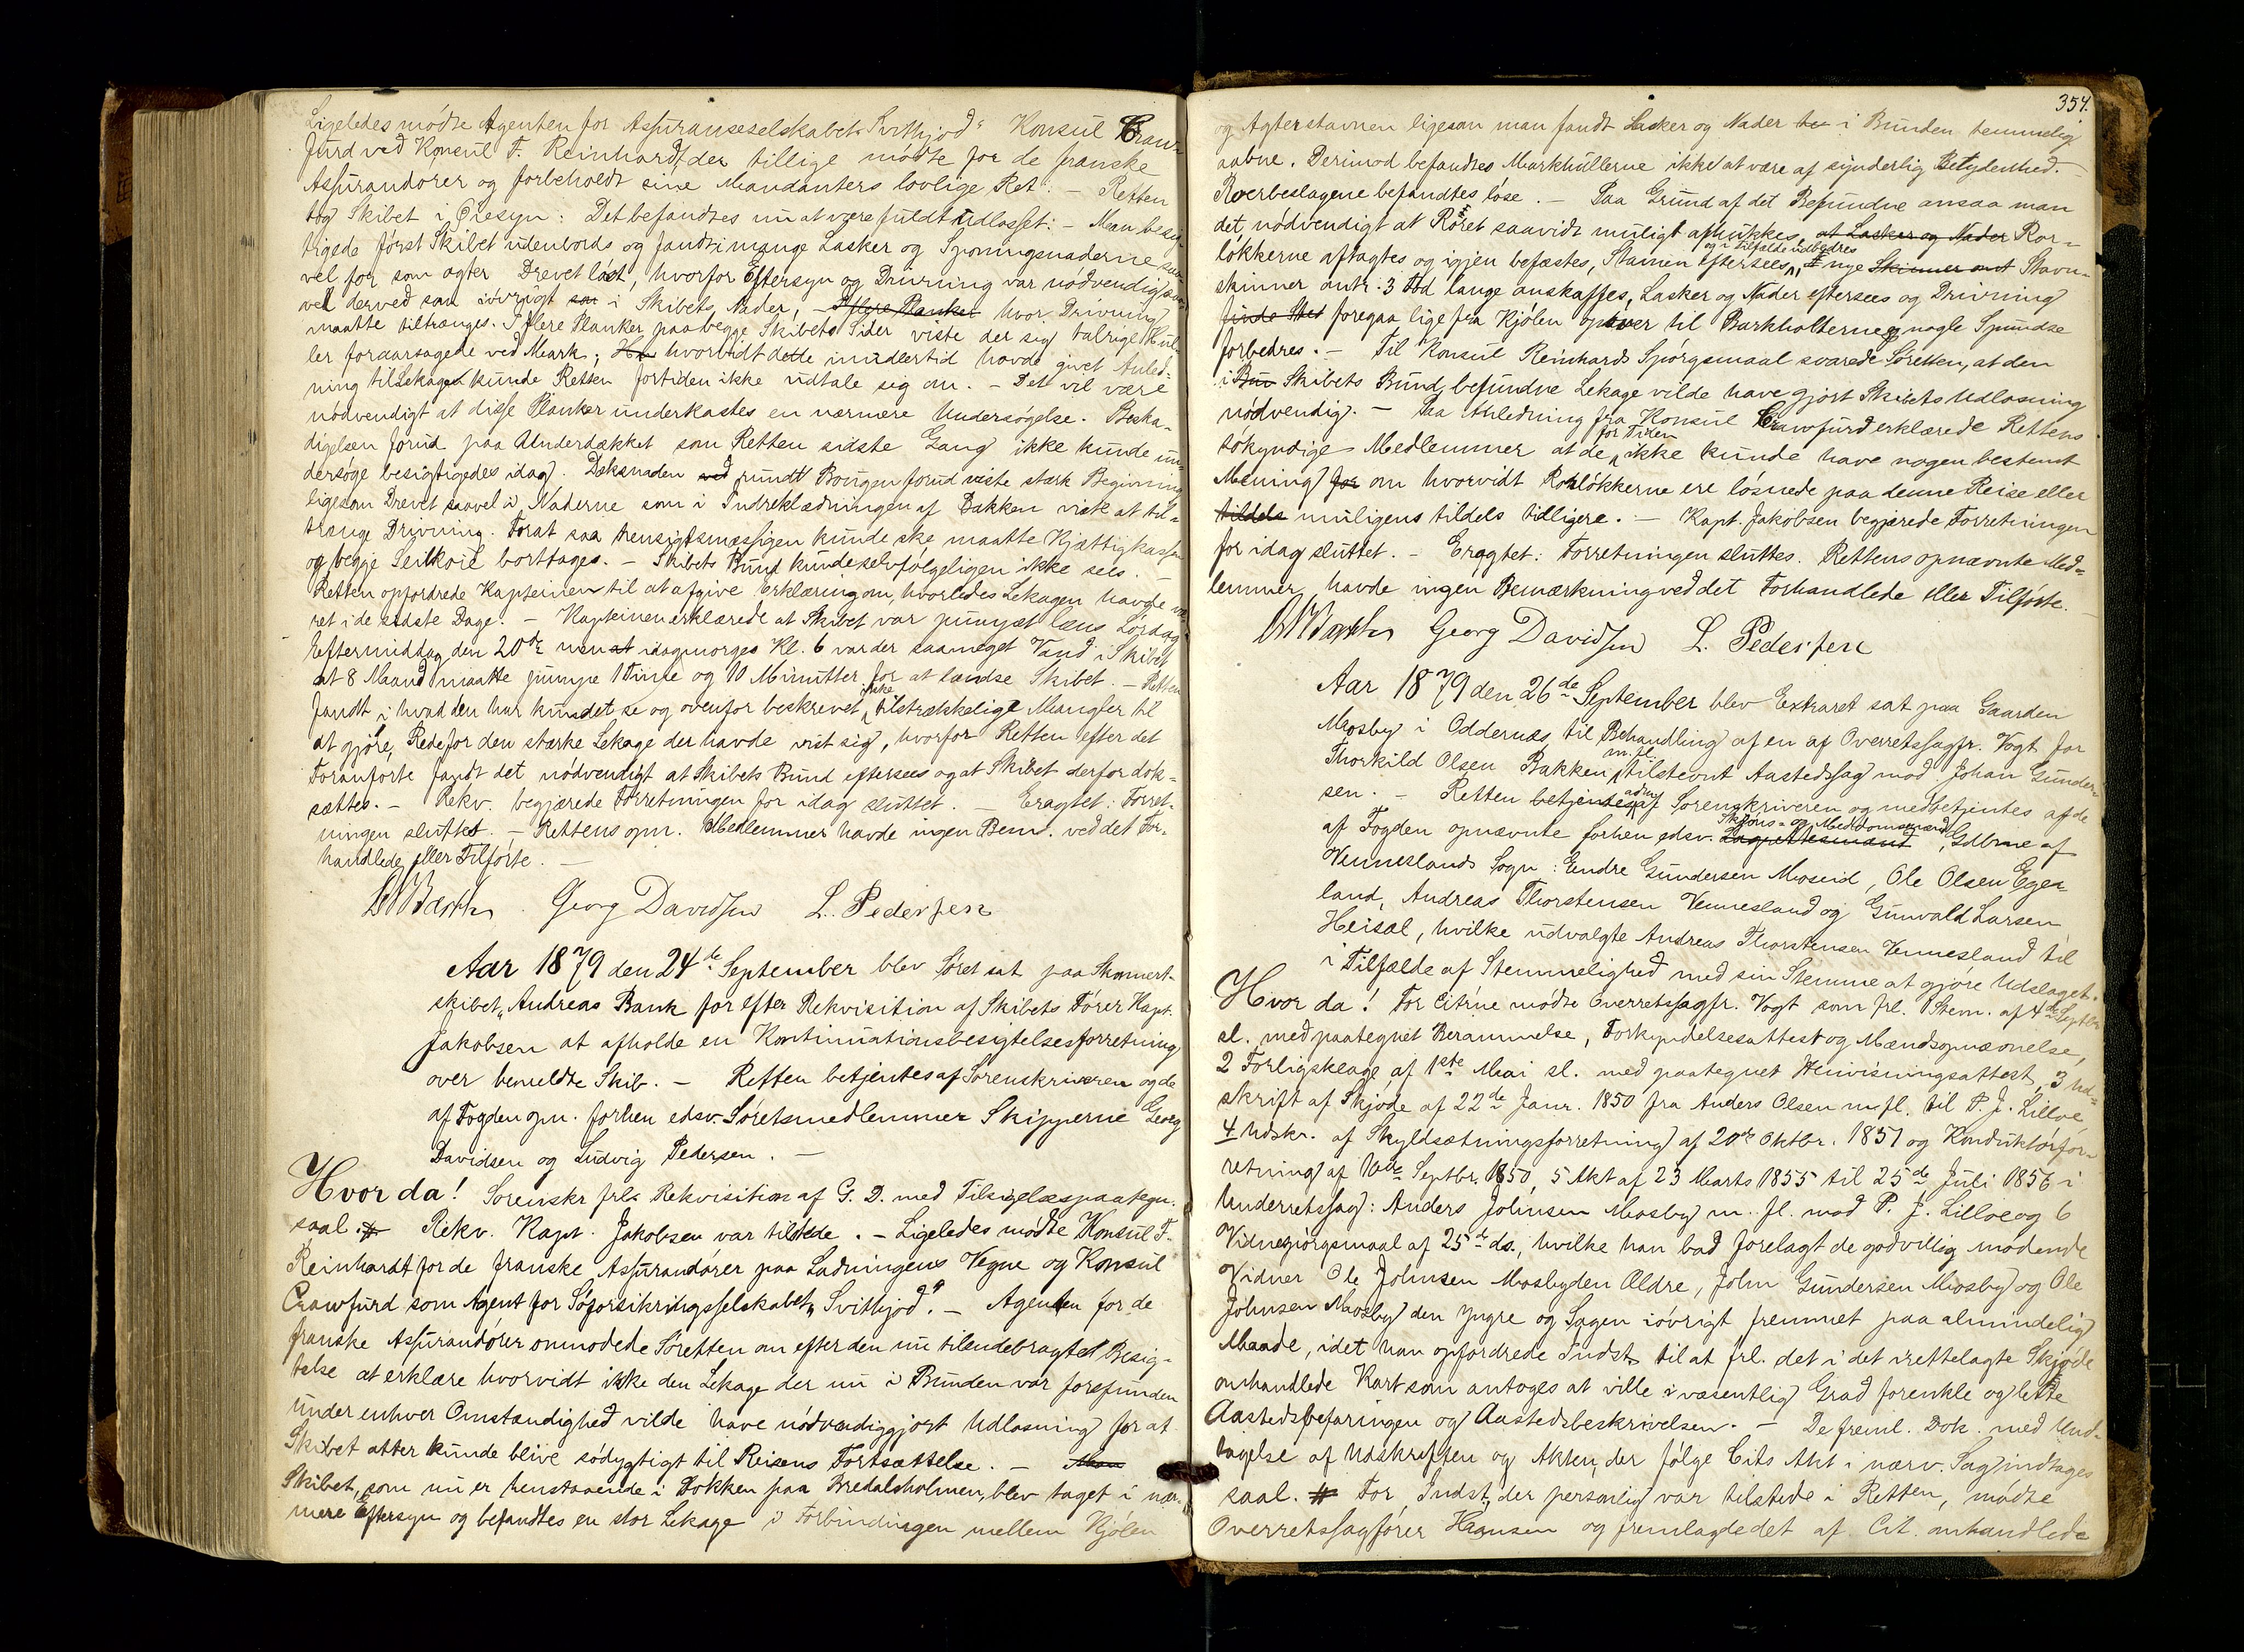 Ligeledes mødte Agenten for Assuranseselskabet „Svithjod“ Konsul Craw-
furd ved Konsul F. Reinhardt, der tillige mødte for de franske
Assurandører og forbeholdt sine Mandanters lovlige Ret. – Retten
tog Skibet i Øiesyn: Det befandtes nu at være fuldt udlosset: – Man besig-
tigede først Skibet udenbords og fandt i mange Lasker og Sponingsnaderne saa-
vel for som agter Drevet løst, hvorfor Eftersyn og Drivning var nødvendig saa-
vel derved som iøvrigt som i Skibets Nader, – I flere Planker hvor Drivning
maatte tiltrænges. I flere Planker paa begge Skibets Sider viste der sig talrige Hul-
ler foraarsagede ved Mark; Ho hvorvidt dette imidlertid havde givet Anled-
ning til Lekagen kunde Retten fortiden ikke udtale sig om. – Det vil være
nødvendigt at disse Planker underkastes en nærmere Undersøgelse. Beska-
digelsen forud paa Underdækket som Retten sidste Gang ikke kunde un-
dersøge besigtigedes idag. Deksnaden ved rundt Bougen forud viste stærk Begivning
ligesom Drevet saavel i Naderne som i Indreklædningen af Bakken viste at til-
trænge Drivning. Forat saa hensigtsmæssigen kunde ske maatte Kjættigkassen
og begge Seilkøie borttages. – Skibets Bund kunde selvfølgeligen ikke sees. –
Retten opfordrede Kapteinen til at afgive Erklæring om, hvorledes Lekagen havde væ-
ret i de sidste Dage. – Kapteinen erklærede at Skibet var pumpet læns Lørdag
Eftermiddag den 20de men at idagmorges Kl. 6 var der saameget Vand i Skibet
at 8 Mand maatte pumpe 1 Time og 10 Minutter for at lændse Skibet. – Retten
fandt i hvad den har kundet se og ovenfor beskrevet ikke tilstrækkelige Mangler til
at gjøre Rede for den stærke Lekage der havde vist sig, hvorfor Retten efter det
Foranførte fandt det nødvendigt at Skibets Bund eftersees og at Skibet derfor dok-
sættes. – Rekv. begjærede Forretningen for idag sluttet. – Eragtet: Forret-
ningen sluttet. – Rettens opn. Medlemmer havde ingen Bem. ved det For-
handlede eller Tilførte. –
Georg Davidsen L. Pedersen
Aar 1879 den 24de September blev Søret sat paa Skonnert-
skibet „Andreas Bank for efter Rekvisition af Skibets Fører Kapt.
Jakobsen at afholde en Kontinuationsbesigtelsesforretning
over bemeldte Skib. – Retten betjentes af Sorenskriveren og de
af Fogden opn. forhen edsv. Søretsmedlemmer Skipperne Georg
Davidsen og Ludvig Pedersen. –
Hvor da! Sorenskr frl. Rekvisition af G. D. med Tilsigelsespaategn.
saal. # Rekv. Kapt. Jakobsen var tilstede. – Ligeledes mødte Konsul F.
Reinhardt for de franske Assurandører paa Ladningens Vegne og Konsul
Crawfurd som Agent for Søforsikringsselskabet „Svithjod“. – Agenten for de
franske Assurandører anmodede Søretten om efter den nu tilendebragte Besig-
telse at erklære hvorvidt ikke den Lekage der nu i Bunden var forefunden
under enhver Omstændighed vilde have nødvendiggjort Udlosning for at
Skibet atter kunde blive sødygtigt til Reisens Fortsættelse. – Man
Skibet, som nu er henstaaende i Dokken paa Bredalsholmen, blev taget i nær-
mere Eftersyn og befandtes en stor Lekage i Forbindingen mellem Kjølen
354.
og Agterstavnen ligesom man fandt Lasker og Nader her i Bunden temmelig
aabne. Derimod befandtes Markhullerne ikke at være af synderlig Betydenhed. –
Roerbeslagene befandtes løse. – Paa Grund af det Befundne ansaa man
det nødvendigt at Roret saavidt muligt afhukkes, at Lasker og Nader Ror-
løkkerne aftagtes og igjen befæstes, Stavnen eftersees og i Tilfælde udbedres, # nye Skinner omt Stavn-
skinner antr. 3 Fod lange anskaffes, Lasker og Nader eftersees og Drivning
finde Sted foregaa lige fra Kjølen opover til Barkholterne og nogle Spundse
forbedres. – Til Konsul Reinhards Spørgsmaal svarede Søretten, at den
i Bun Skibets Bund befundne Lekage vilde have gjort Skibets Udlosning
nødvendig. – Paa Anledning fra Konsul Crawfurd erklærede Rettens
søkyndige Medlemmer at de for Tiden ikke kunde have nogen bestemt
Mening for om hvorvidt Rorløkkerne ere løsnede paa denne Reise eller
tildels muligens tildels tidligere. – Kapt. Jakobsen begjærede Forretningen
for idag sluttet. – Eragtet: Forretningen sluttes. Rettens opnævnte Med-
lemmer havde ingen Bemærkning ved det Forhandlede eller Tilførte. –
Georg Davidsen L. Pedersen
Aar 1879 den 26de September blev Extraret sat paa Gaarden
Mosby i Oddernæs til Behandling af en af Overretssagfr. Vogt for
Thorkild Olsen Bakken m. fl. tilstevnt Aastedssag mod Johan Gunder-
sen. – Retten betjentes af adm. Sorenskriveren og medbetjentes af de
af Fogden opnævnte forhen edsv. Lagrettesmænd Skjøns- og Meddomsmænd, Gdbrne af
Venneslands Sogn: Endre Gundersen Moseid, Ole Olsen Egeland,
Andreas Thorstensen Vennesland og Gunvald Larsen
Heisel, hvilke udvalgte Andreas Thorstensen Vennesland til
i Tilfælde af Stemmelighed med sin Stemme at gjøre Udslaget.
Hvor da! For Citrne mødte Overretssagfr. Vogt som frl. 1 Stevn. af 4de Septbr
sl. med paategnet Berammelse, Forkyndelsesattest og Mændsopnævnelse,
2 Forligsklage af 1ste Mai sl. med paategnet Henvisningsattest, 3 Ud-
skrift af Skjøde af 22de Janr. 1850 fra Anders Olsen m fl. til P. J. Lilloe,
4 Udskr. af Skyldsætningsforretning af 20de Oktbr. 1851 og Konduktørfor-
retning af Septbr. 1850, 5 Akt af 23 Marts 1855 til 25de Juli 1856 i
Underretssag: Anders Johnsen Mosby m. fl. mod P. J. Lilloe og 6
Vidnespørgsmaal af 25de ds., hvilke han bad forelagt de godvillig mødende
Vidner Ole Johnsen Mosby den Ældre, John Gundersen Mosby og Ole
Johnsen Mosby den Yngre og Sagen iøvrigt fremmet paa almindelig
Maade, idet han opfordrede Indst. til at frl. det i det irettelagte Skjøde
omhandlede Kart som antoges at ville i væsentlig Grad forenkle og lette
Aastedsbefaringen og Aastedsbeskrivelsen. – De freml. Dok. med Und-
tagelse af Udskriften og Akten, der følge Cits Akt i nærv. Sag, indtages
saal. # For Indst., der personlig var tilstede i Retten, mødte
Overretssagfører Hansen og fremlagde det af Cit. omhandlede